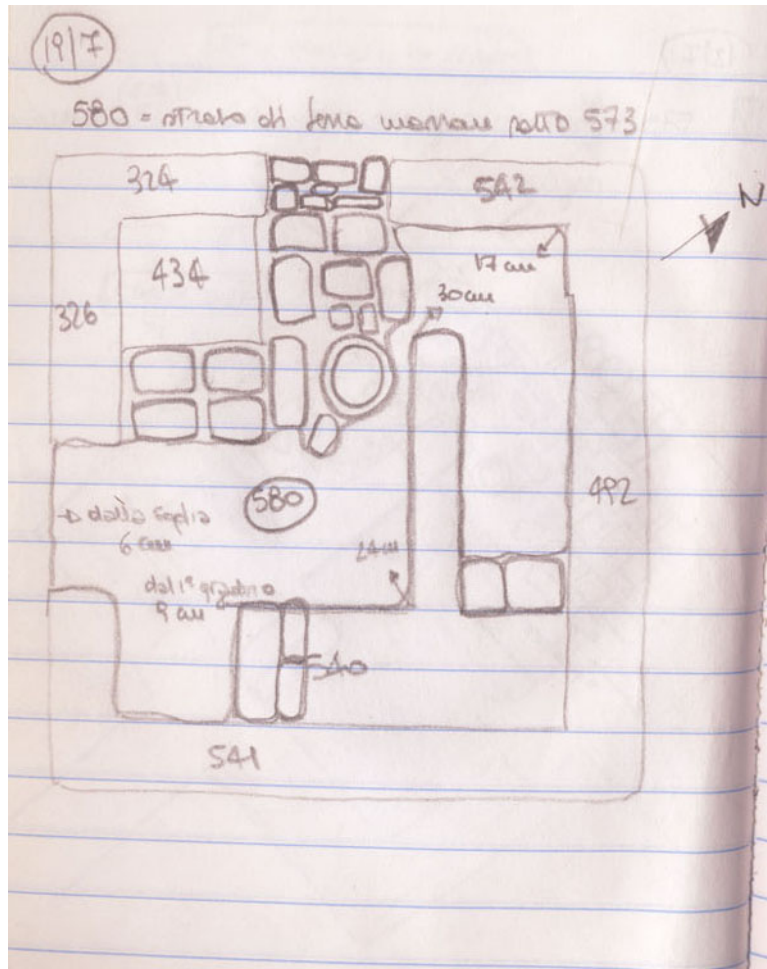 19/7
580 = strato di terra marrone sotto 573
324
542
N
434
17 cm
30 cm
326
492
580
→ dalla soglia
6 cm
24 cm
dal 1° gradino
9 cm
540
541